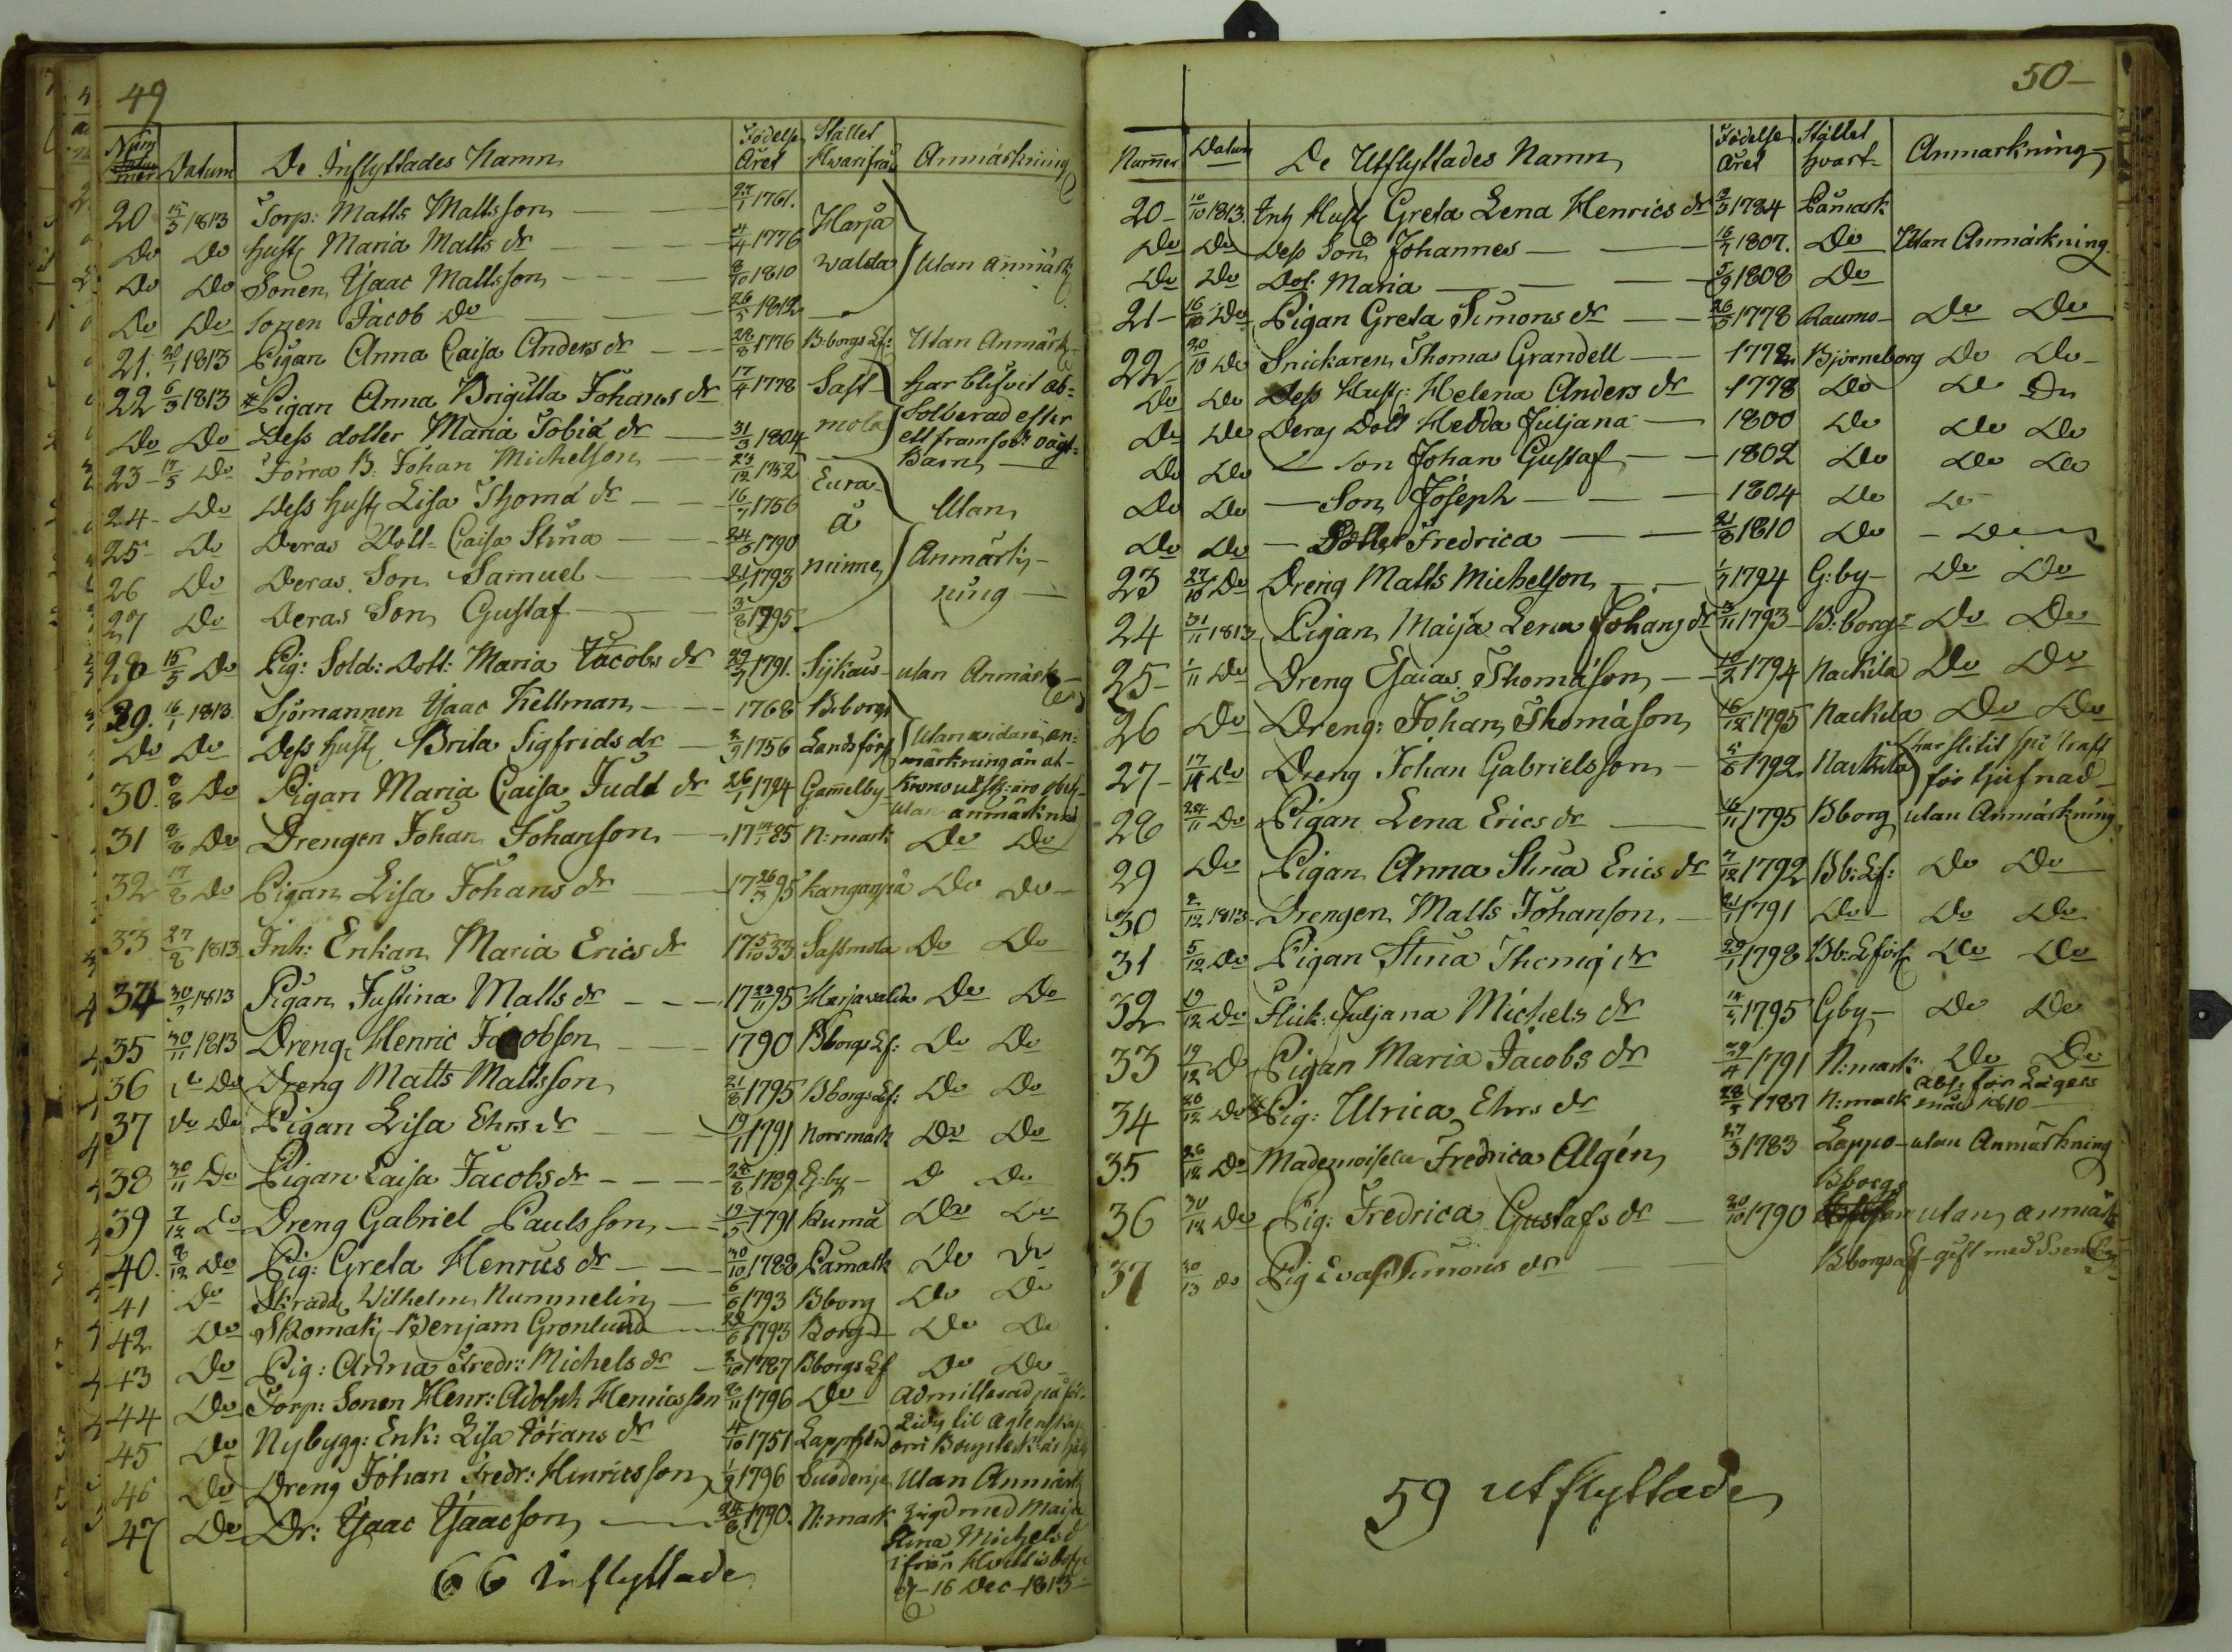 49
Num mer Datum De Inflyttades Namn Födelse Året Stället Hvarifrån Anmärkning
20 15/3 1813 Torp: Matts Mattsson 27/1 1761. Harja
Do Do Hust Maria Matts dr 4/4 1776 walda Utan anmärk
Do Do Sonen Isaac Mattsson 8/10 1810
Do Do Sonen Jacob Do 26/5 1812
21. 20/1 1813 Pigan Anna Caisa Anders dr 28/8 1776 B:borgs Lf: Utan Anmärk
22 6/3 1813 Pigan Anna Brigitta Johans dr 17/4 1778 Sast har blifvit ab=
Do Do Dess dotter Maria Tobiæ dr 31/3 1804 mola solverad efter
ett framfödt oägt:
23 17/5 Do Förra B. Johan Michelson 23/12 1752 Eura Barn
24 Do Dess hust Lisa Thomæ dr 16/7 1756 å Utan
25 Do Deras Dott Caisa Stina 24/6 1790 minne Anmärk
26 Do Deras Son Samuel 21/1 1793 ning
27 Do Deras Son Gustaf 3/8 1795
28 15/5 Do Pig: Sold: Dott: Maria Jacobs dr 29/4 1791. Sijkais utan Anmärk
29. 16/1 1813 Sjömannen Isaac Kellman 1768 B:borgs
Do Do Dess hust Brita Sigfrids dr 2/9 1756 Landsförs Utan vidare an=
märkning än at
30. 8/8 Do Pigan Maria Caisa Judt dr 26/1 1794 Gamelby
utan anmärkn
31 8/8 Do Drengen Johan Johanson 1785 N:mark Do Do
32 17/8 Do Pigan Lisa Johans dr 17 26/3 95 Kanganpä Do Do
33 27/8 1813 Inh: Enkan Maria Erics dr 17 5/10 33 Sastmola Do Do
34 30/7 1813 Pigan Justina Matts dr 17 22/11 95 Harjavalda Do Do
35 30/11 1813 Dreng: Henric Jacobson 1790 Bborgs Lf: Do Do
36 Do Do Dreng Matts Mattsson 21/8 1795 Bborgs Lf: Do Do
37 Do Do Pigan Lisa Ehrs dr 19/1 1791 Norrmark Do Do
38 30/11 Do Pigan Caisa Jacobs dr 28/8 1789 G:by D Do
39 7/12 Do Dreng Gabriel Paulsson 19/5 1791 Kumå Do Do
40. 8/12 Do Pig: Greta Henrics dr 30/10 1788 Påmark Do Do
41 Do Skradd Wilhelm Nummelin 6/6 1793 Bborg Do Do
42 Do Skomak Benjam Gronlund 28/6 1793 Borg Do Do
43 Do Pig: Anna Fredr: Michels dr 2/10 1787 Bborgs Lf Do Do
44 Do Torp: Sonen Henr: Adolph Henricsson 2/11 1796 Do Admitterad
45 Do Nybygg: Enk: Lisa Görans dr 4/10 1751 Lappfierd
46 Do Dreng Johan Fredr: Hinricsson 1/9 1796 Suodenje Utan Anmärk
47 Do Dr: Isaac Isaacson 24/6 1790. N:mark vigd med Maija
Stina Michels d
ifrån
d 16 Dec 1813
66 Inflyttade
50
Numer Datum De Utflyttades Namn Födelse Året Stället hvart Anmarkning
20 10/10 1813. Inh Hust Greta Lena Henrics dr 2/3 1784 Påmark
Do Do Dess Son Johannes 16/7 1807. Do Utan Anmärkning.
Do Do Dot: Maria 5/9 1808 Do
21 16/10 Do Pigan Greta Simons dr 26/3 1778 Raumo Do Do
22 20/10 Do Snickaren Thomas Grandell 1772 Bjorneborg Do Do
Do Do Dess Hust: Helena Anders dr 1778 Do Do Do
Do Do Deras Dott Hedda Juljana 1800 Do Do Do
Do Do Son Johan Gustaf 1802 Do Do Do
Do Do Son Joseph 1804 Do Do
Do Do Dotter Fredrica 21/8 1810 Do Do
23 27/10 Do Dreng Matts Michelson 1/3 1794 G:by Do Do
24 31/11 1813 Pigan Maija Lena Johans dr 3/11 1793 B:borgs Do Do
25 1/11 Do Dreng Esaias Thomæson 10/2 1794 Nackila Do Do
26 Do Dreng: Johan Thomæson 16/12 1795 Nackila Do Do
27 17/11 Do Dreng Johan Gabrielsson 5/8 1792 Nackila har slitit spö straff
för tjufnad
28 24/11 Do Pigan Lena Erics dr 16/11 1795 Bborg utan Anmärkning
29 Do Pigan Anna Stina Erics dr 7/12 1792 Bb: Lf: Do Do
30 2/12 1813 Drengen Matts Johanson 21/1 1791 Do Do Do
31 5/12 Do Pigan Stina Thomæ dr 29/1 1798 Bb: Lförs Do Do
32 19/12 Do Flick: Juljana Michels dr 1795 Gby Do Do
33 19/12 D Pigan Maria Jacobs dr 29/4 1791 N:mark Do Do
34 26/12 Do Pig: Ulrica Ehrs dr 28/5 1787 N:mark Abs: för Lägers
mål 1810
35 26/12 Do Mademoiselle Fredrica Algén 27/3 1783 Lappo utan Anmärkning
36 30/12 Do Pig: Fredrica Gustafs dr 20/10 1790 Bborgs utan anmärk
37 30/13 Do Pig Eva Simons dr Bborgs Lf gift med Sven
59 utflyttade